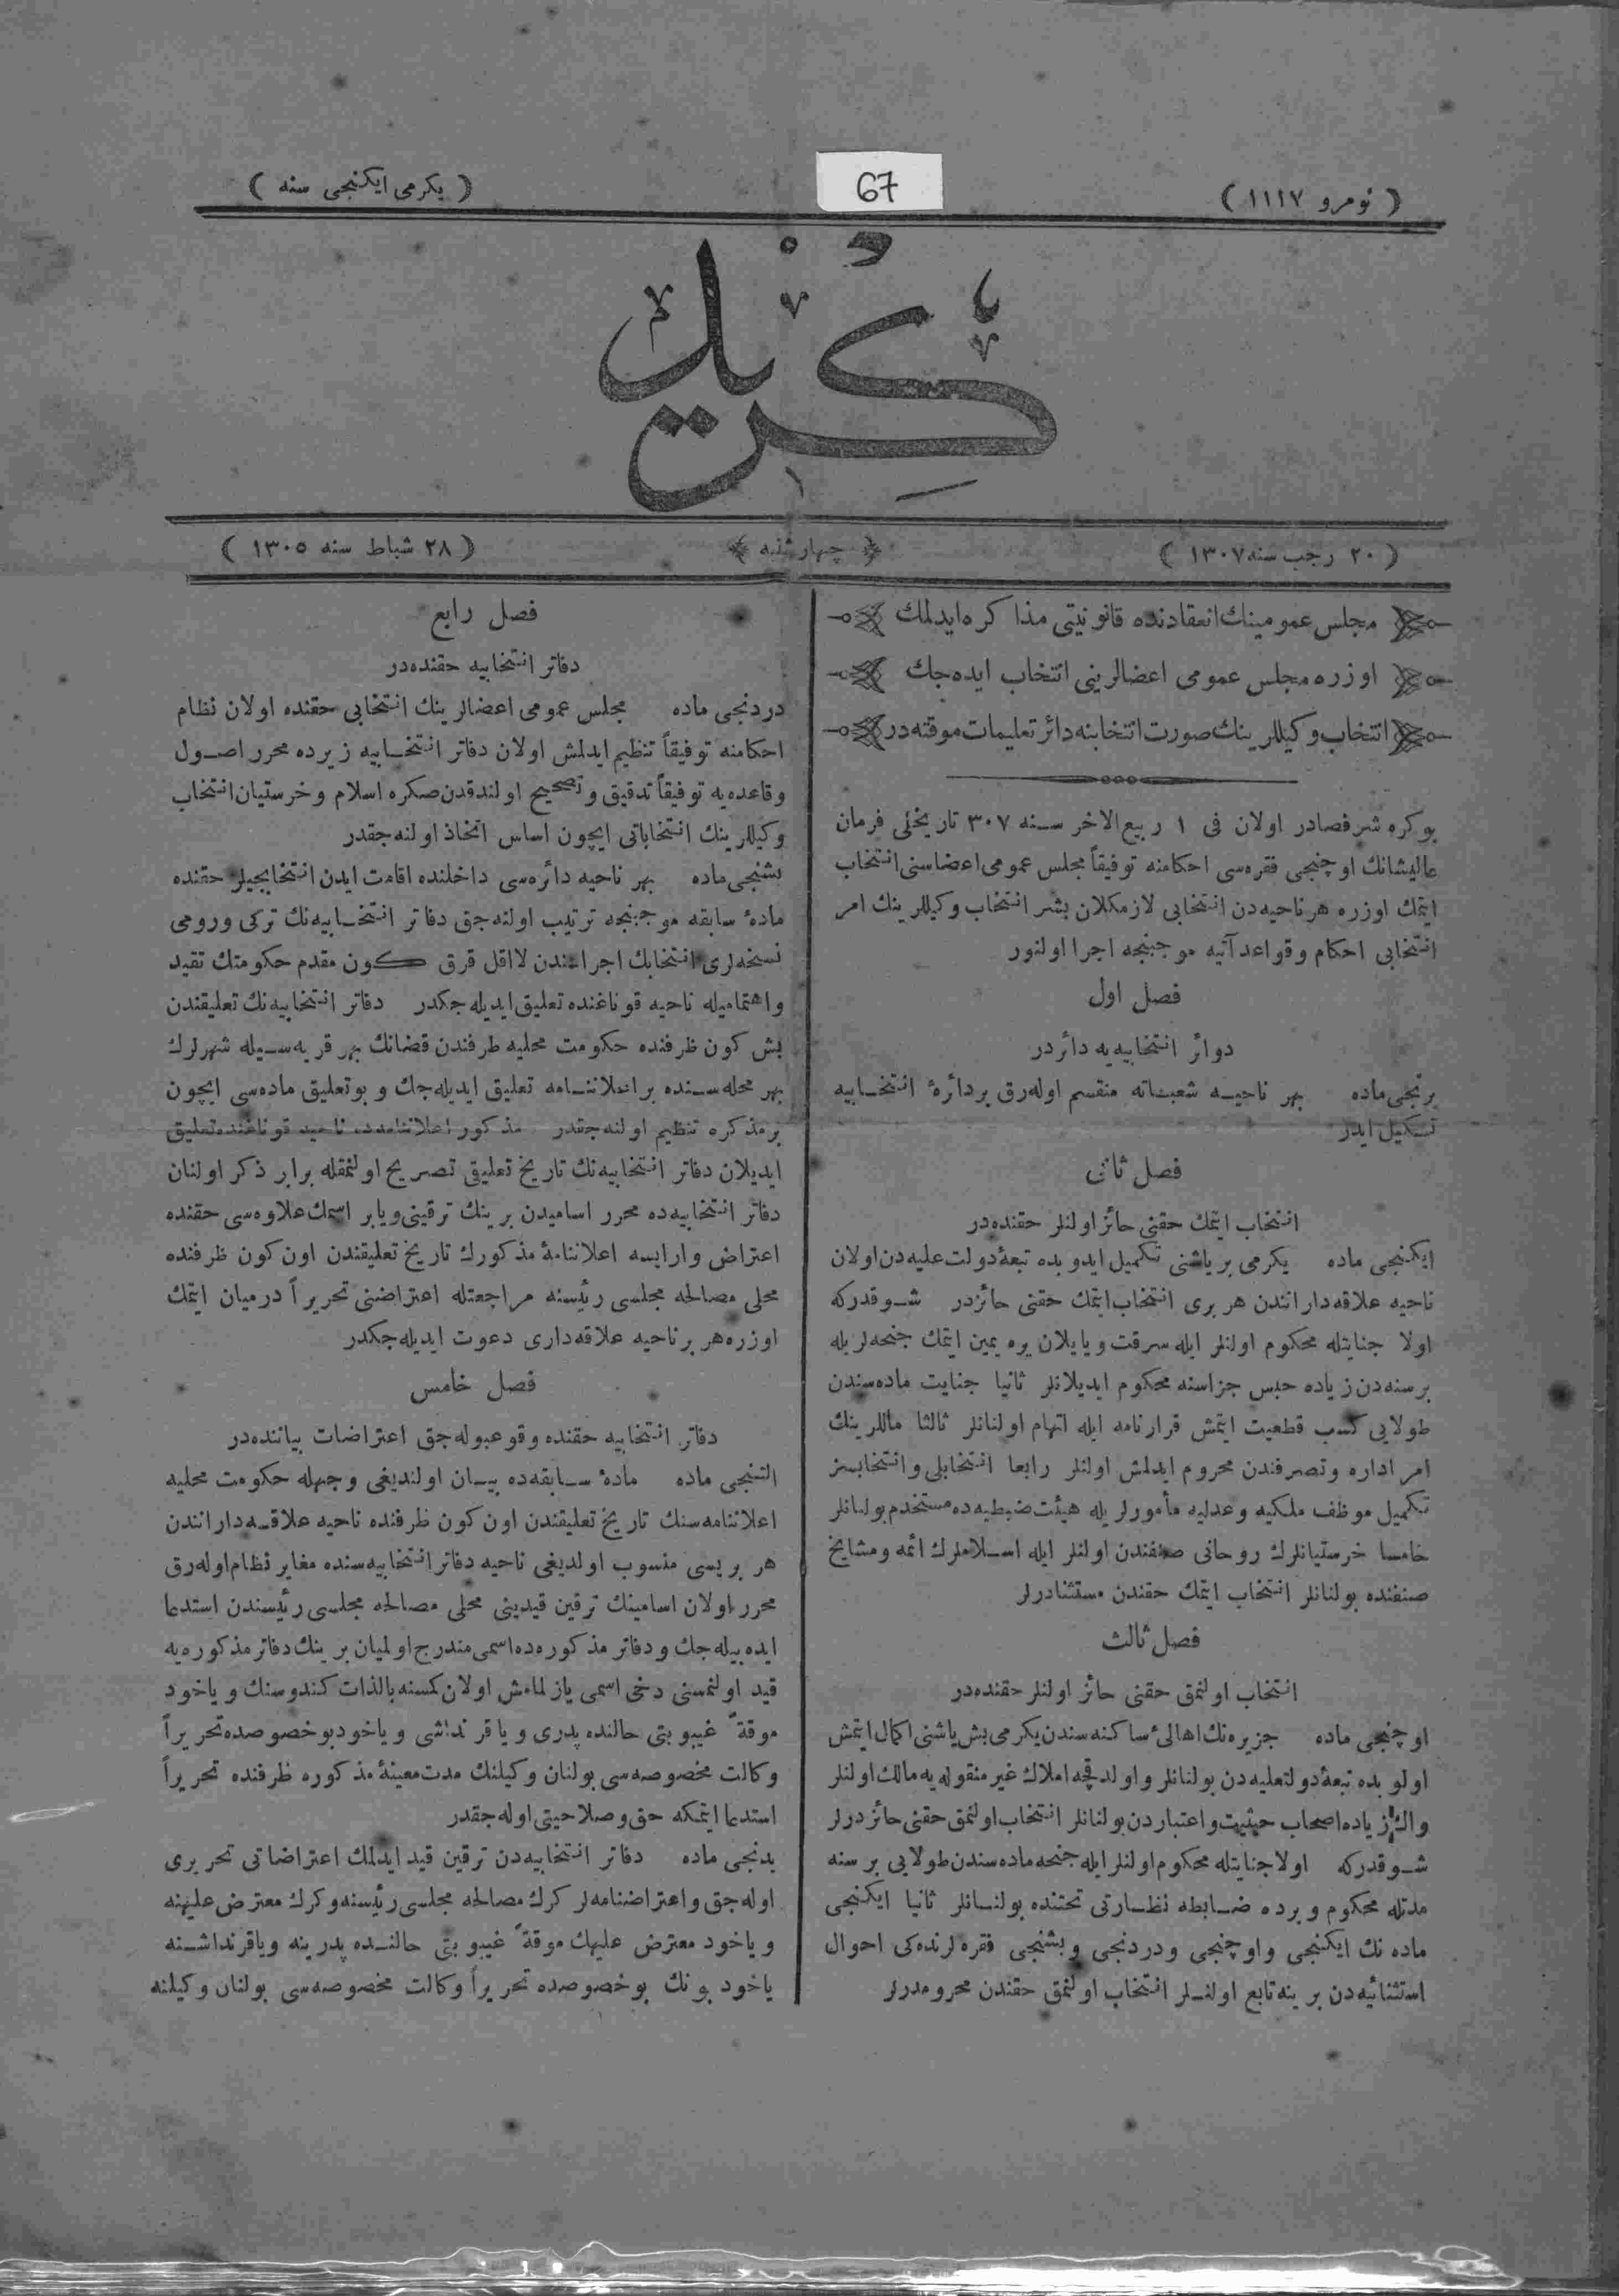 ( يكرمى ايكنجى سنه )
67
( نومرو ١١١٧ )
كريد
( ٢٠ رجب سنه ١٣٠٧ )
چهارشنبه
( ٢٨ شباط سنه ١٣٠٥ )
مجلس عمومينك انعقادنده قانونيتى مذاكره ايدلمك
اوزره مجلس عمومى اعضالرينى انتخاب ايده جك
انتخاب وكيللرينك صورت انتخابنه دائر تعليمات موقته در
بوكره شرفصادر اولان فى ١ ربيع الاخر سنه ٣٠٧ تاريخلى فرمان
عاليشانك اوچنجى فقره سى احكامنه توفيقاً مجلس عمومى اعضاسنى انتخاب
ايتمك اوزره هر ناحيه دن انتخابى لازمكلان بشر انتخاب وكيللرينك امر
انتخابى احكام وقواعد آتيه موجبنجه اجرا اولنور
فصل اول
دوائر انتخابيه يه دائردر
برنجى ماده بهر ناحيه شعباته منقسم اوله رق بر دائرۀ انتخابيه
تشكيل ايدر
فصل ثانى
انتخاب ايتمك حقنى حائز اولنلر حقنده در
ايكنجى ماده يكرمى بر ياشنى تكميل ايدوبده تبعۀ دولت عليه دن اولان
ناحيه علاقه دارانندن هر برى انتخاب ايتمك حقنى حائزدر شوقدركه
اولا جنايتله محكوم اولنلر ايله سرقت ويا يلان يره يمين ايتمك جنحه لريله
بر سنه دن زياده حبس جزاسنه محكوم ايديلانلر ثانيا جنايت ماده سندن
طولايى كسب قطعيت ايتمش قرارنامه ايله اتهام اولنانلر ثالثا ماللرينك
امر اداره وتصرفندن محروم ايدلمش اولنلر رابعا انتخابلى وانتخابسز
تكميل موظف ملكيه وعدليه مأمورلريله هيئت ضبطيه ده مستخدم بولنانلر
خامسا خرستيانلرك روحانى صنفندن اولنلر ايله اسلاملرك ائمه ومشايخ
صنفنده بولنانلر انتخاب ايتمك حقندن مستثنادرلر
فصل ثالث
انتخاب اولنمق حقنى حائز اولنلر حقنده در
اوچنجى ماده جزيره نك اهالئ ساكنه سندن يكرمى بش ياشنى اكمال ايتمش
اولوبده تبعۀ دولتعليه دن بولنانلر واولدقچه املاك غير منقوله يه مالك اولنلر
واك زياده اصحاب حيثيت واعتباردن بولنانلر انتخاب اولنمق حقنى حائزدرلر
شوقدركه اولا جنايتله محكوم اولنلر ايله جنحه ماده سندن طولايى بر سنه
مدتله محكوم وبرده ضابطه نظارتى تحتنده بولنانلر ثانيا ايكنجى
ماده نك ايكنجى واوچنجى ودردنجى وبشنجى فقره لرنده كى احوال
استثنائيه دن برينه تابع اولنلر انتخاب اولنمق حقندن محرومدرلر
فصل رابع
دفاتر انتخابيه حقنده در
دردنجى ماده مجلس عمومى اعضالرينك انتخابى حقنده اولان نظام
احكامنه توفيقاً تنظيم ايدلمش اولان دفاتر انتخابيه زيرده محرر اصول
وقاعده يه توفيقاً تدقيق وتصحيح اولندقدن صكره اسلام وخرستيان انتخاب
وكيللرينك انتخاباتى ايچون اساس اتخاذ اولنه جقدر
بشنجى ماده بهر ناحيه دائره سى داخلنده اقامت ايدن انتخابجيلر حقنده
مادۀ سابقه موجبنجه ترتيب اولنه جق دفاتر انتخابيه نك تركى ورومى
نسخه لرى انتخابك اجراسندن لااقل قرق كون مقدم حكومتك تقيد
واهتماميله ناحيه قوناغنده تعليق ايديله جكدر دفاتر انتخابيه نك تعليقندن
بش كون ظرفنده حكومت محليه طرفندن قضانك بهر قريه سيله شهرلرك
بهر محله سنده بر اعلاننامه تعليق ايديله جك وبو تعليق ماده سى ايچون
بر مذكره تنظيم اولنه جقدر مذكور اعلاننامه ده ناحيه قوناغنده تعليق
ايديلان دفاتر انتخابيه نك تاريخ تعليقى تصريح اولنمقله برابر ذكر اولنان
دفاتر انتخابيه ده محرر اساميدن برينك ترقينى ويا بر اسمك علاوه سى حقنده
اعتراض وارايسه اعلاننامۀ مذكورك تاريخ تعليقندن اون كون ظرفنده
محلى مصالحه مجلسى رئيسنه مراجعتله اعتراضنى تحريراً درميان ايتمك
اوزره هر بر ناحيه علاقه دارى دعوت ايديله جكدر
فصل خامس
دفاتر انتخابيه حقنده وقوعبوله جق اعتراضات بياننده در
التنجى ماده مادۀ سابقه ده بيان اولنديغى وجهله حكومت محليه
اعلاننامه سنك تاريخ تعليقندن اون كون ظرفنده ناحيه علاقه دارانندن
هر بريسى منسوب اولديغى ناحيه دفاتر انتخابيه سنده مغاير نظام اوله رق
محرر اولان اسامينك ترقين قيدينى محلى مصالحه مجلسى رئيسندن استدعا
ايده بيله جك ودفاتر مذكوره ده اسمى مندرج اولميان برينك دفاتر مذكوره يه
قيد اولنمسنى دخى اسمى يازلمامش اولان كمسنه بالذات كندوسنك وياخود
موقةً غيبوبتى حالنده پدرى ويا قرنداشى وياخود بوخصوصده تحريراً
وكالت مخصوصه سى بولنان وكيلنك مدت معينۀ مذكوره ظرفنده تحريراً
استدعا ايتمكه حق وصلاحيتى اوله جقدر
يدنجى ماده دفاتر انتخابيه دن ترقين قيد ايدلمك اعتراضاتى تحريرى
اوله جق واعتراضنامه لر كرك مصالحه مجلسى رئيسنه وكرك معترض عليهنه
وياخود معترض عليهك موقةً غيبوبتى حالنده پدرينه وياقرنداشنه
ياخود بونك بوخصوصده تحريراً وكالت مخصوصه سى بولنان وكيلنه